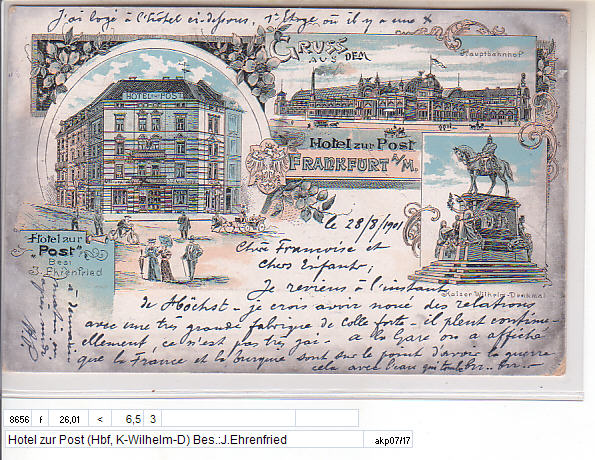 J'ai logé à l'hôtel ci-dessous, 1er Etage où il y a une x
GRUSS
AUS DEM
Hauptbahnhof
HOTEL POST
Hotel zur Post
FRANKFURT A/M.
Hotel zur
"Post"
Bes:
J. Ehrenfried
Kaiser Wilhelm-Denkmal
le 28/8/1901
Chère Françoise et
Chers Enfants,
Je reviens à l'instant
de Höchst - je crois avoir noué des relations
avec une très grande fabrique de colle forte - il pleut continu-
ellement, ce n'est pas très gai. - à la gare on a affiché
que la France et la Turquie sont sur le point d'avoir la guerre
cela avec l'eau qui tombe brr.. brr..
8656 f 26,01 < 6,5 3
Hotel zur Post (Hbf, K-Wilhelm-D) Bes.:J.Ehrenfried akp07/17